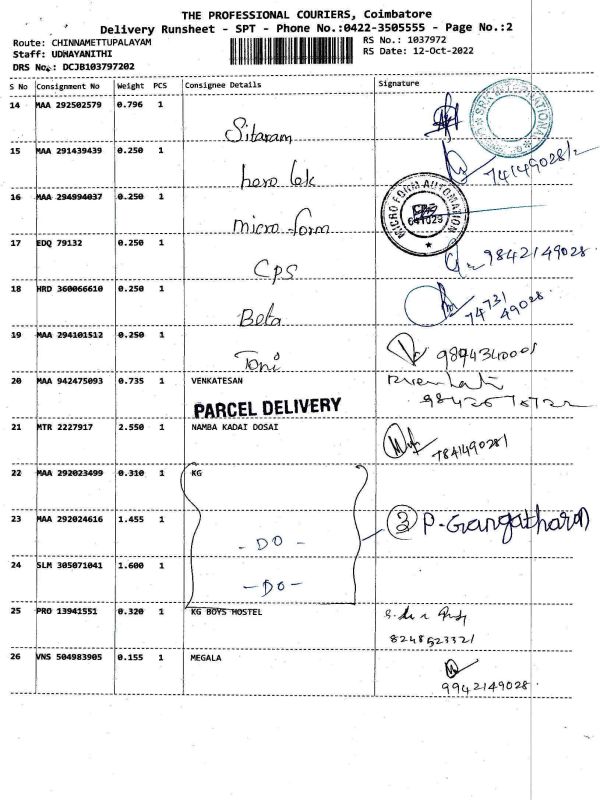 THE PROFESSIONAL COURIERS, Coimbatore
Delivery Runsheet - SPT - Phone No.:0422-3505555 - Page No.:2
Route: CHINNAMETTUPALAYAM
RS No.: 1037972
Staff: UDHAYANITHI
RS Date: 12-Oct-2022
DRS No.: DCJB103797202
S No Consignment No Weight PCS Consignee Details Signature
14 MAA 292502579 0.796 1 Sitaram
SRK INTERNATIONAL
15 MAA 291439439 0.250 1 hero tek
16 MAA 294994037 0.250 1 micro form
MICRO FORM AUTOMATION
CBE
641029
17 EDQ 79132 0.250 1 CPS 9842149028
18 HRD 360066610 0.250 1 Beta 74731 49028
19 MAA 294101512 0.250 1 Toni
20 MAA 942475093 0.735 1 VENKATESAN
PARCEL DELIVERY
21 MTR 2227917 2.550 1 NAMBA KADAI DOSAI
22 MAA 292023499 0.310 1 KG
23 MAA 292024616 1.455 1 - DO - 3 P. Gangatharan
24 SLM 305071041 1.600 1 - DO -
25 PRO 13941551 0.320 1 KG BOYS HOSTEL
8248523321
26 VNS 504983905 0.155 1 MEGALA
9942149028